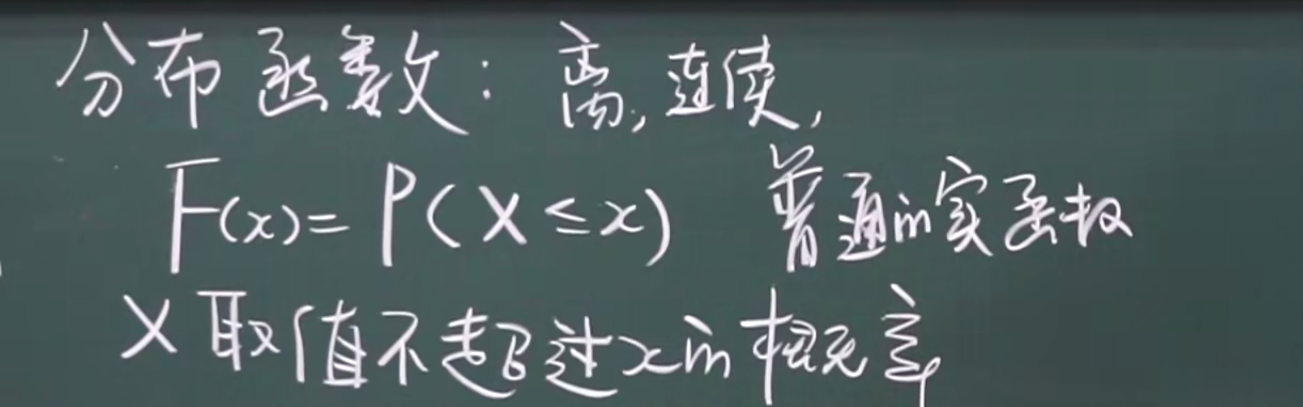 分布函数:离,连续,
F(x)=P(X≤x) 普通的实函数
X取值不超过x的概率